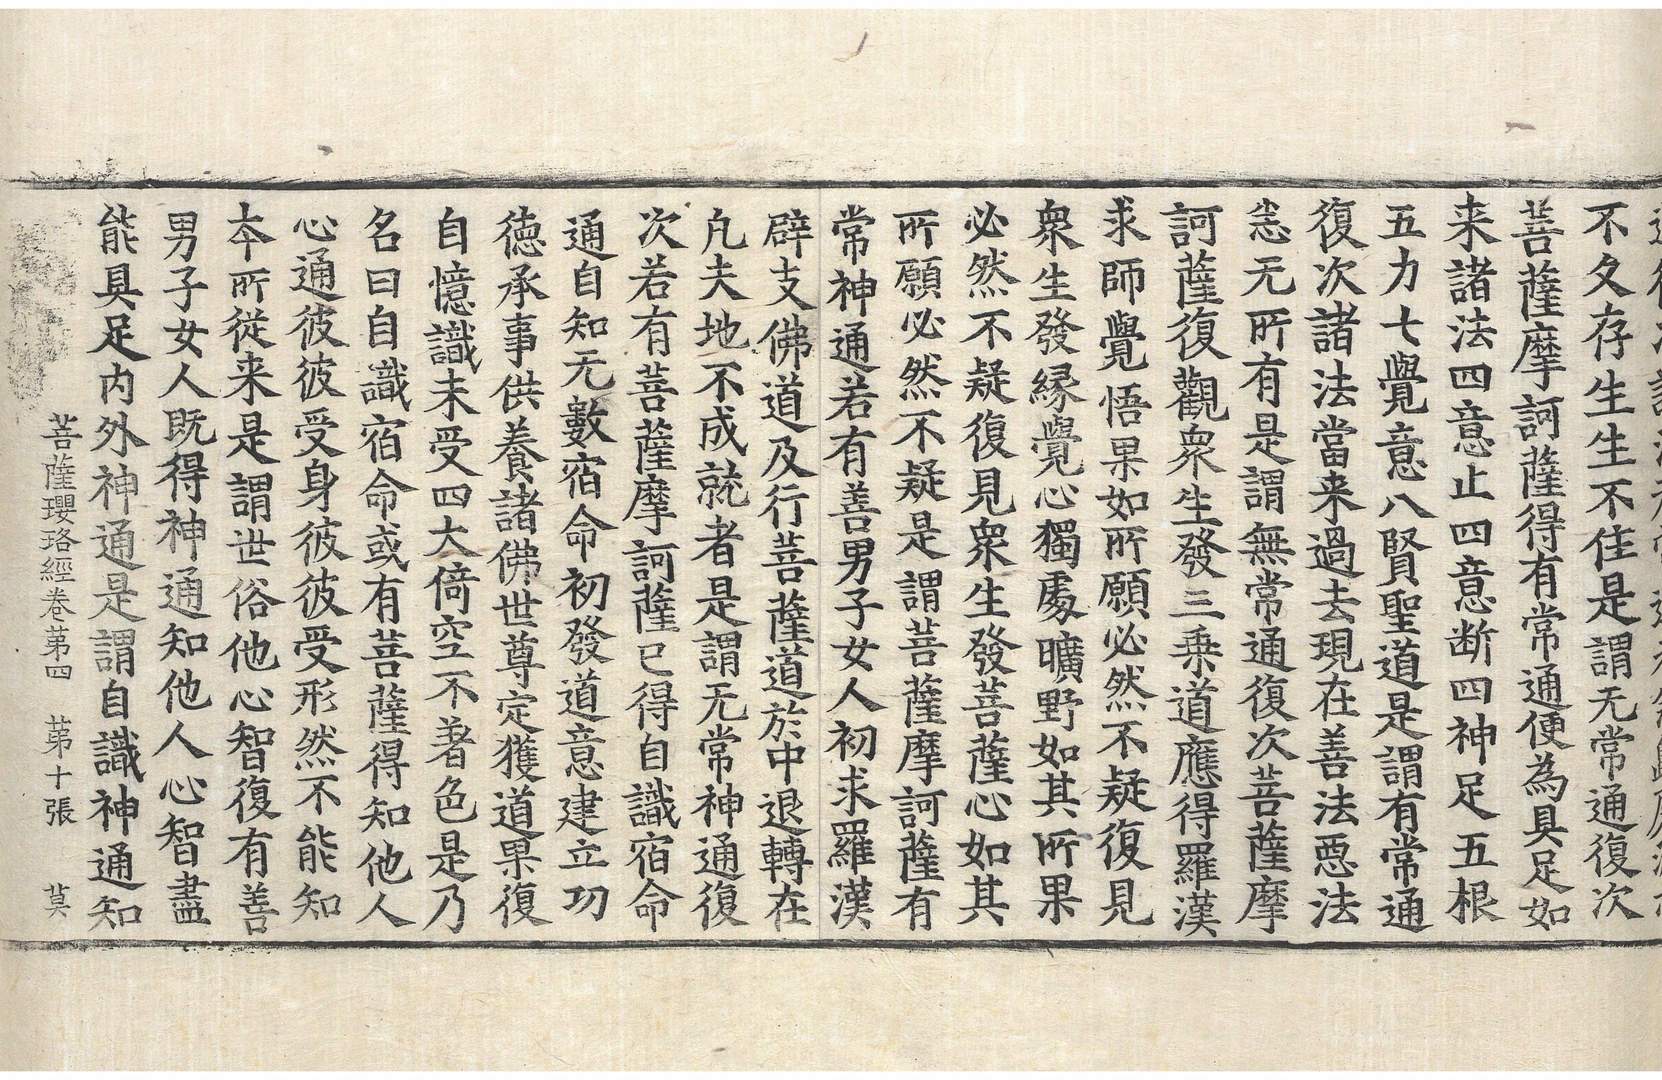 不久存生生不住是謂无常通復次
菩薩摩訶薩得有常通便為具足如
来諸法四意止四意断四神足五根
五力七覺意八賢聖道是謂有常通
復次諸法當来過去現在善法惡法
恙无所有是謂無常通復次菩薩摩
訶薩復觀衆生發三乗道應得羅漢
求師覺悟果如所願必然不疑復見
衆生發縁覺心獨處曠野如其所果
必然不疑復見衆生發菩薩心如其
所願必然不疑是謂菩薩摩訶薩有
常神通若有善男子女人初求羅漢
辟支佛道及行菩薩道於中退轉在
凡夫地不成就者是謂无常神通復
次若有菩薩摩訶薩已得自識宿命
通自知无數宿命初發道意建立功
德承事供養諸佛世尊定獲道果復
自憶識未受四大倚空不著色是乃
名曰自識宿命或有菩薩得知他人
心通彼彼受身彼彼受形然不能知
本所從来是謂世俗他心智復有善
男子女人既得神通知他人心智盡
能具足内外神通是謂自識神通知
菩薩瓔珞經卷第四　苐十張　莫